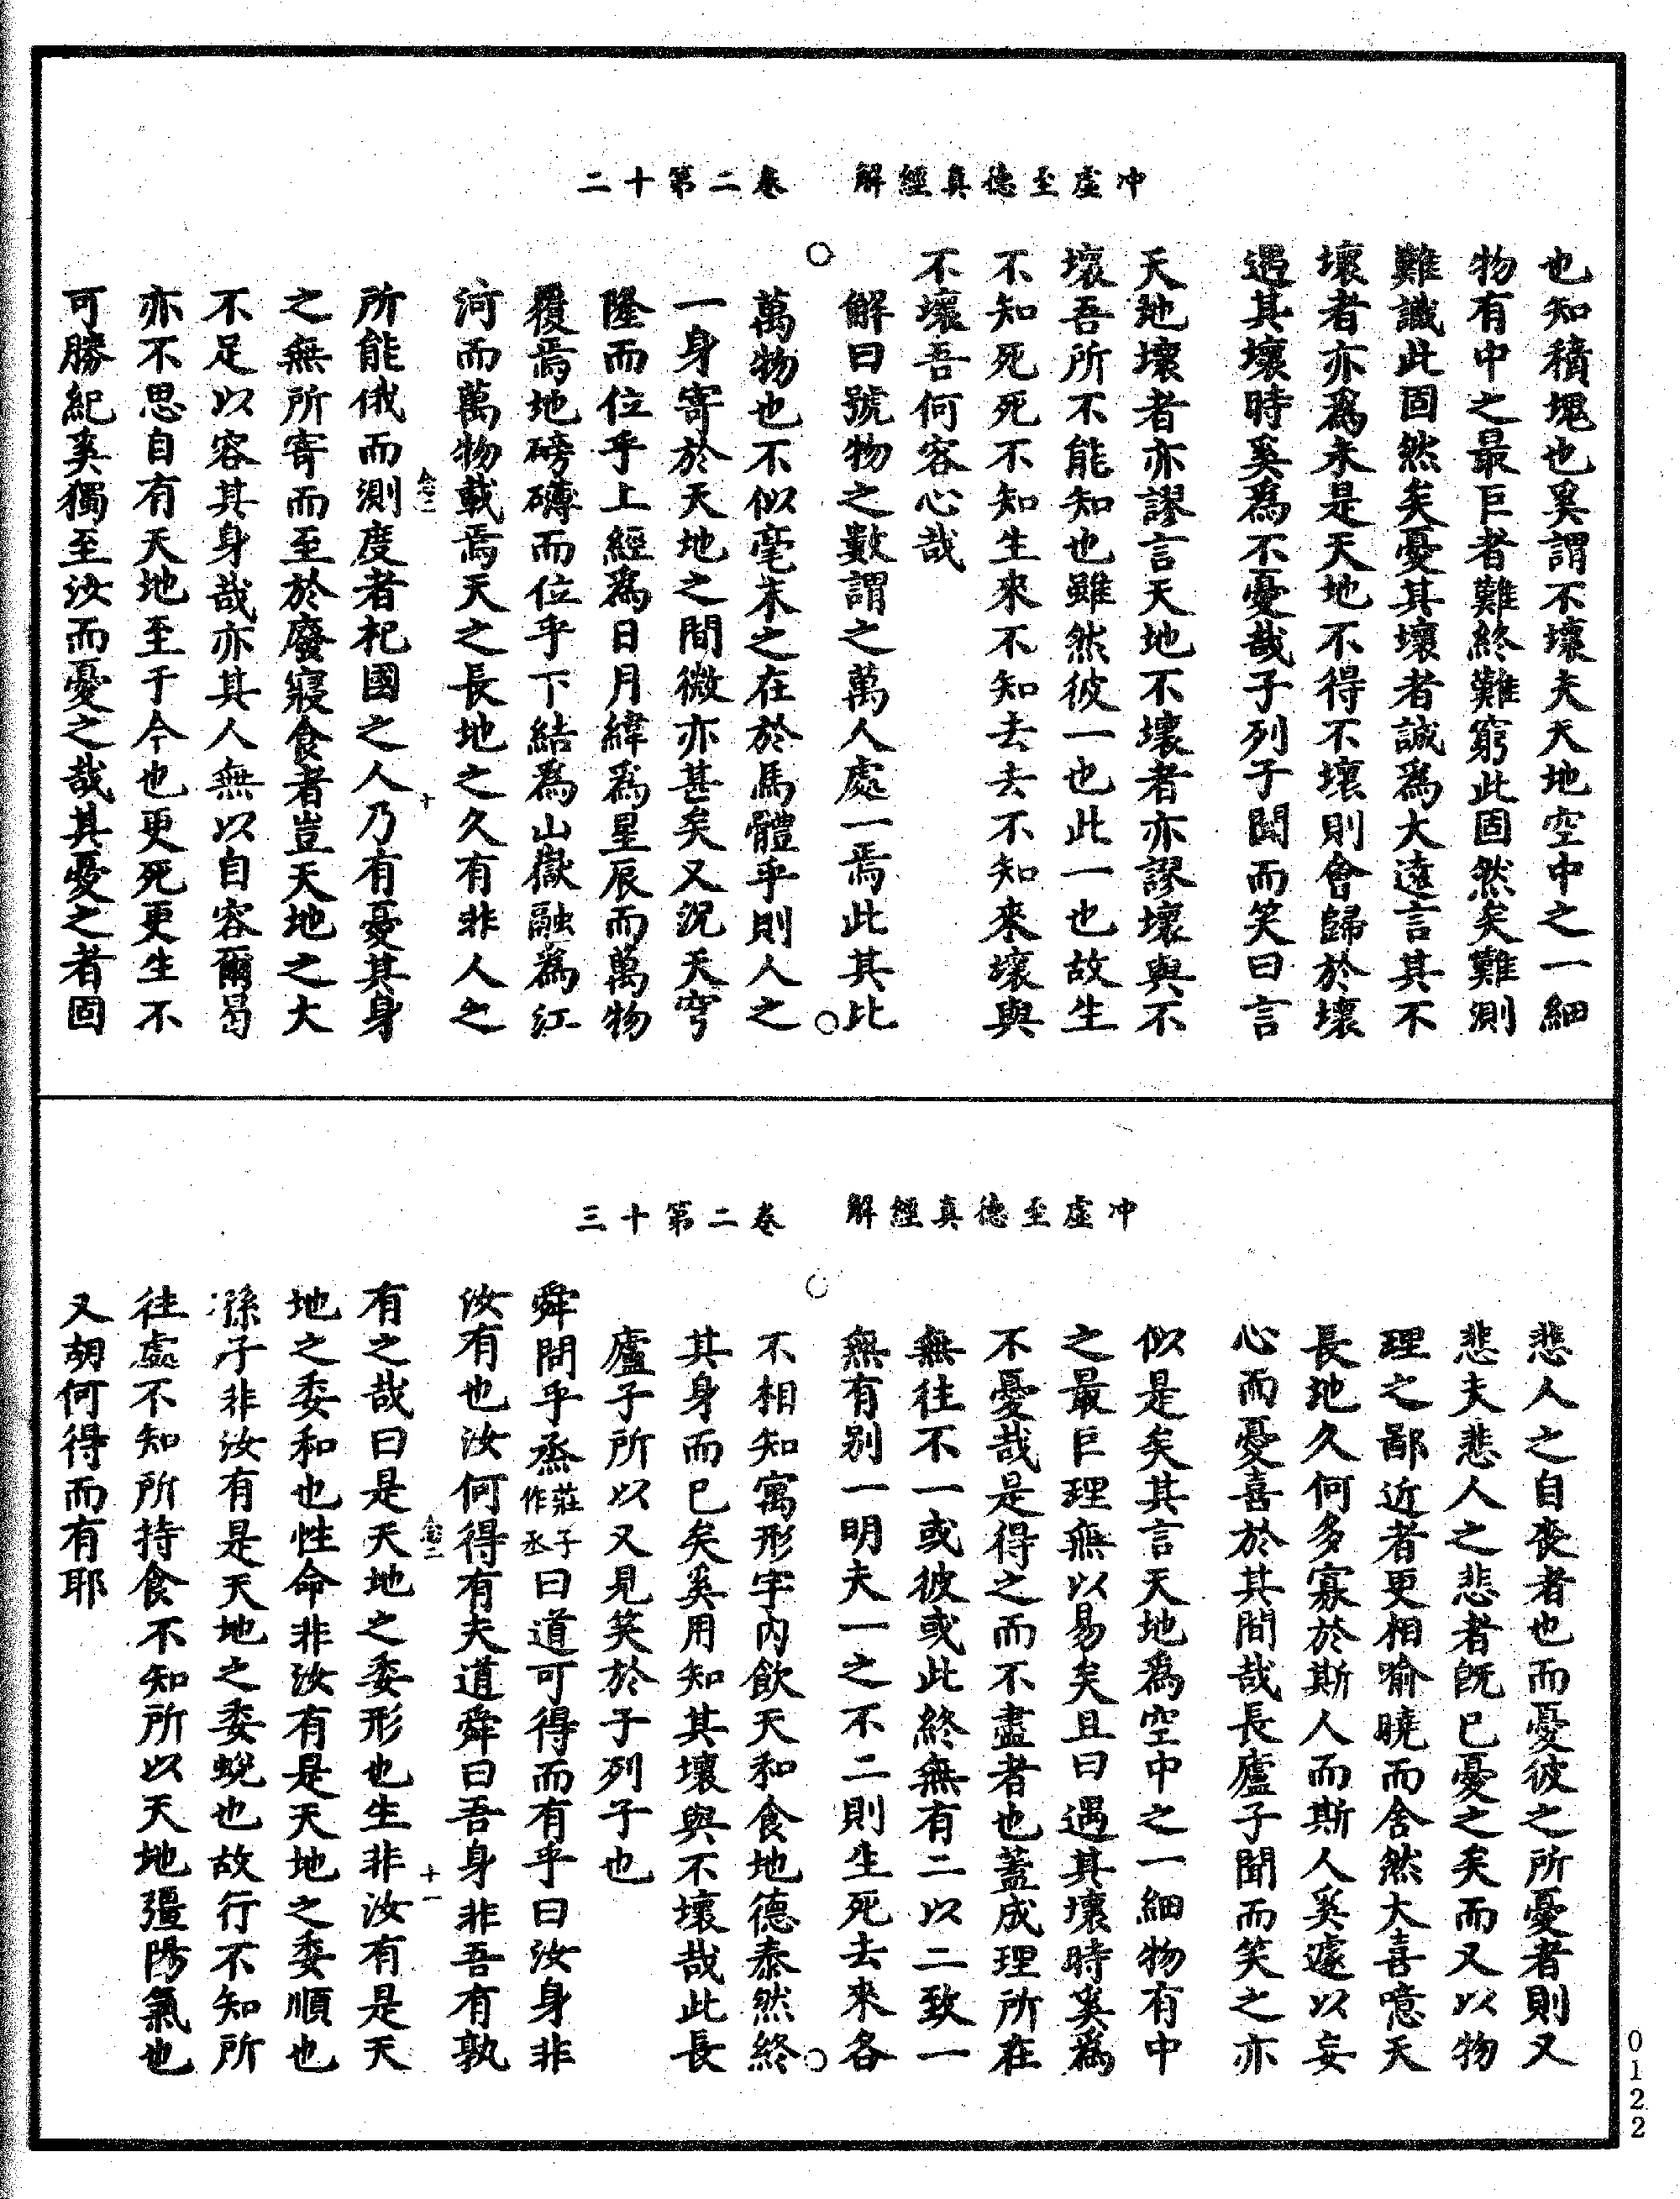 冲虛至德真經解　卷二第十二
也知積塊也奚謂不壞夫天地空中之一細
物有中之最巨者難終難窮此固然矣難測
難識此固然矣憂其壞者誠爲大遠言其不
壞者亦爲未是天地不得不壞則會歸於壞
遇其壞時奚爲不憂哉子列子聞而笑曰言
天地壞者亦謬言天地不壞者亦謬壞與不
壞吾所不能知也雖然彼一也此一也故生
不知死死不知生來不知去去不知來壞與
不壞吾何容心哉
解曰號物之數謂之萬人處一焉此其比
萬物也不似毫末之在於馬體乎則人之
一身寄於天地之間微亦甚矣又況天穹
隆而位乎上經爲日月緯爲星辰而萬物
覆焉地磅礴而位乎下結爲山嶽融爲江
河而萬物載焉天之長地之久有非人之
所能俄而測度者杞國之人乃有憂其身
之無所寄而至於廢寢食者豈天地之大
不足以容其身哉亦其人無以自容爾曷
亦不思自有天地至于今也更死更生不
可勝紀奚獨至汝而憂之哉其憂之者固
十
冲虛至德真經解　卷二第十三
悲人之自喪者也而憂彼之所憂者則又
悲夫悲人之悲者旣已憂之矣而又以物
理之鄙近者更相喻曉而舍然大喜噫天
長地久何多寡於斯人而斯人奚遽以妄
心而憂喜於其間哉長廬子聞而笑之亦
似是矣其言天地爲空中之一細物有中
之最巨理無以易矣且曰遇其壞時奚爲
不憂哉是得之而不盡者也蓋成理所在
無往不一或彼或此終無有二以二致一
無有别一明夫一之不二則生死去來各
不相知寓形宇內飲天和食地德泰然終
其身而已矣奚用知其壞與不壞哉此長
廬子所以又見笑於子列子也
舜問乎烝莊子作丞曰道可得而有乎曰汝身非
汝有也汝何得有夫道舜曰吾身非吾有孰
有之哉曰是天地之委形也生非汝有是天
地之委和也性命非汝有是天地之委順也
孫子非汝有是天地之委蛻也故行不知所
往處不知所持食不知所以天地彊陽氣也
又胡何得而有耶
十一
0122